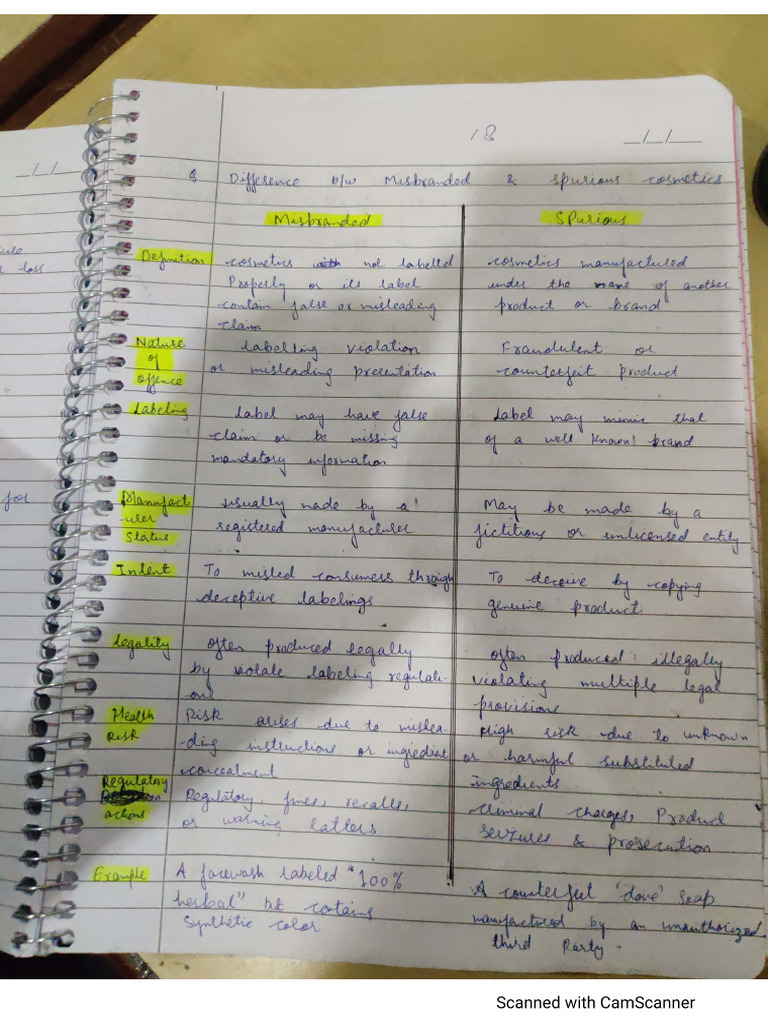 18
__/__/____
_/_/
Q Difference b/w Misbranded & spurious cosmetics
Misbranded
Spurious
Definition
cosmetics not labelled
Properly or its label
contain false or misleading
claim
cosmetics manufactured
under the name of another
product or brand
Nature
of
offence
labelling violation
or misleading presentation
Fraudulent or
counterfeit product
Labeling
Label may have false
claim or be missing
mandatory information
Label may mimic that
of a well known brand
Manufact
-urer
Status
usually made by a
registered manufacturer
May be made by a
fictitious or unlicensed entity
Intent
To misled consumers through
deceptive labelings
To deceive by copying
genuine product
Legality
often produced legally
by violate labeling regulati-
ons
often produced illegally
violating multiple legal
provisions
Health
Risk
Risk arises due to mislea-
-ding instructions or ingredient
concealment
High risk due to unknown
or harmful substituted
ingredients
Regulatory
actions
Regulatory, fines, recalls,
or warning latters
criminal charges, Product
seizures & prosecution
Example
A facewash labeled "100%
herbal" but contains
synthetic color
A counterfeit 'dove' soap
manufactured by an unauthorized
third Party.
loss
for
Scanned with CamScanner